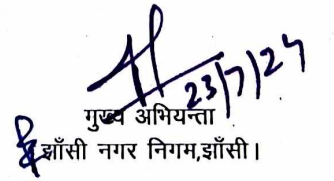 23/7/24
मुख्य अभियन्ता
झाँसी नगर निगम,झाँसी।